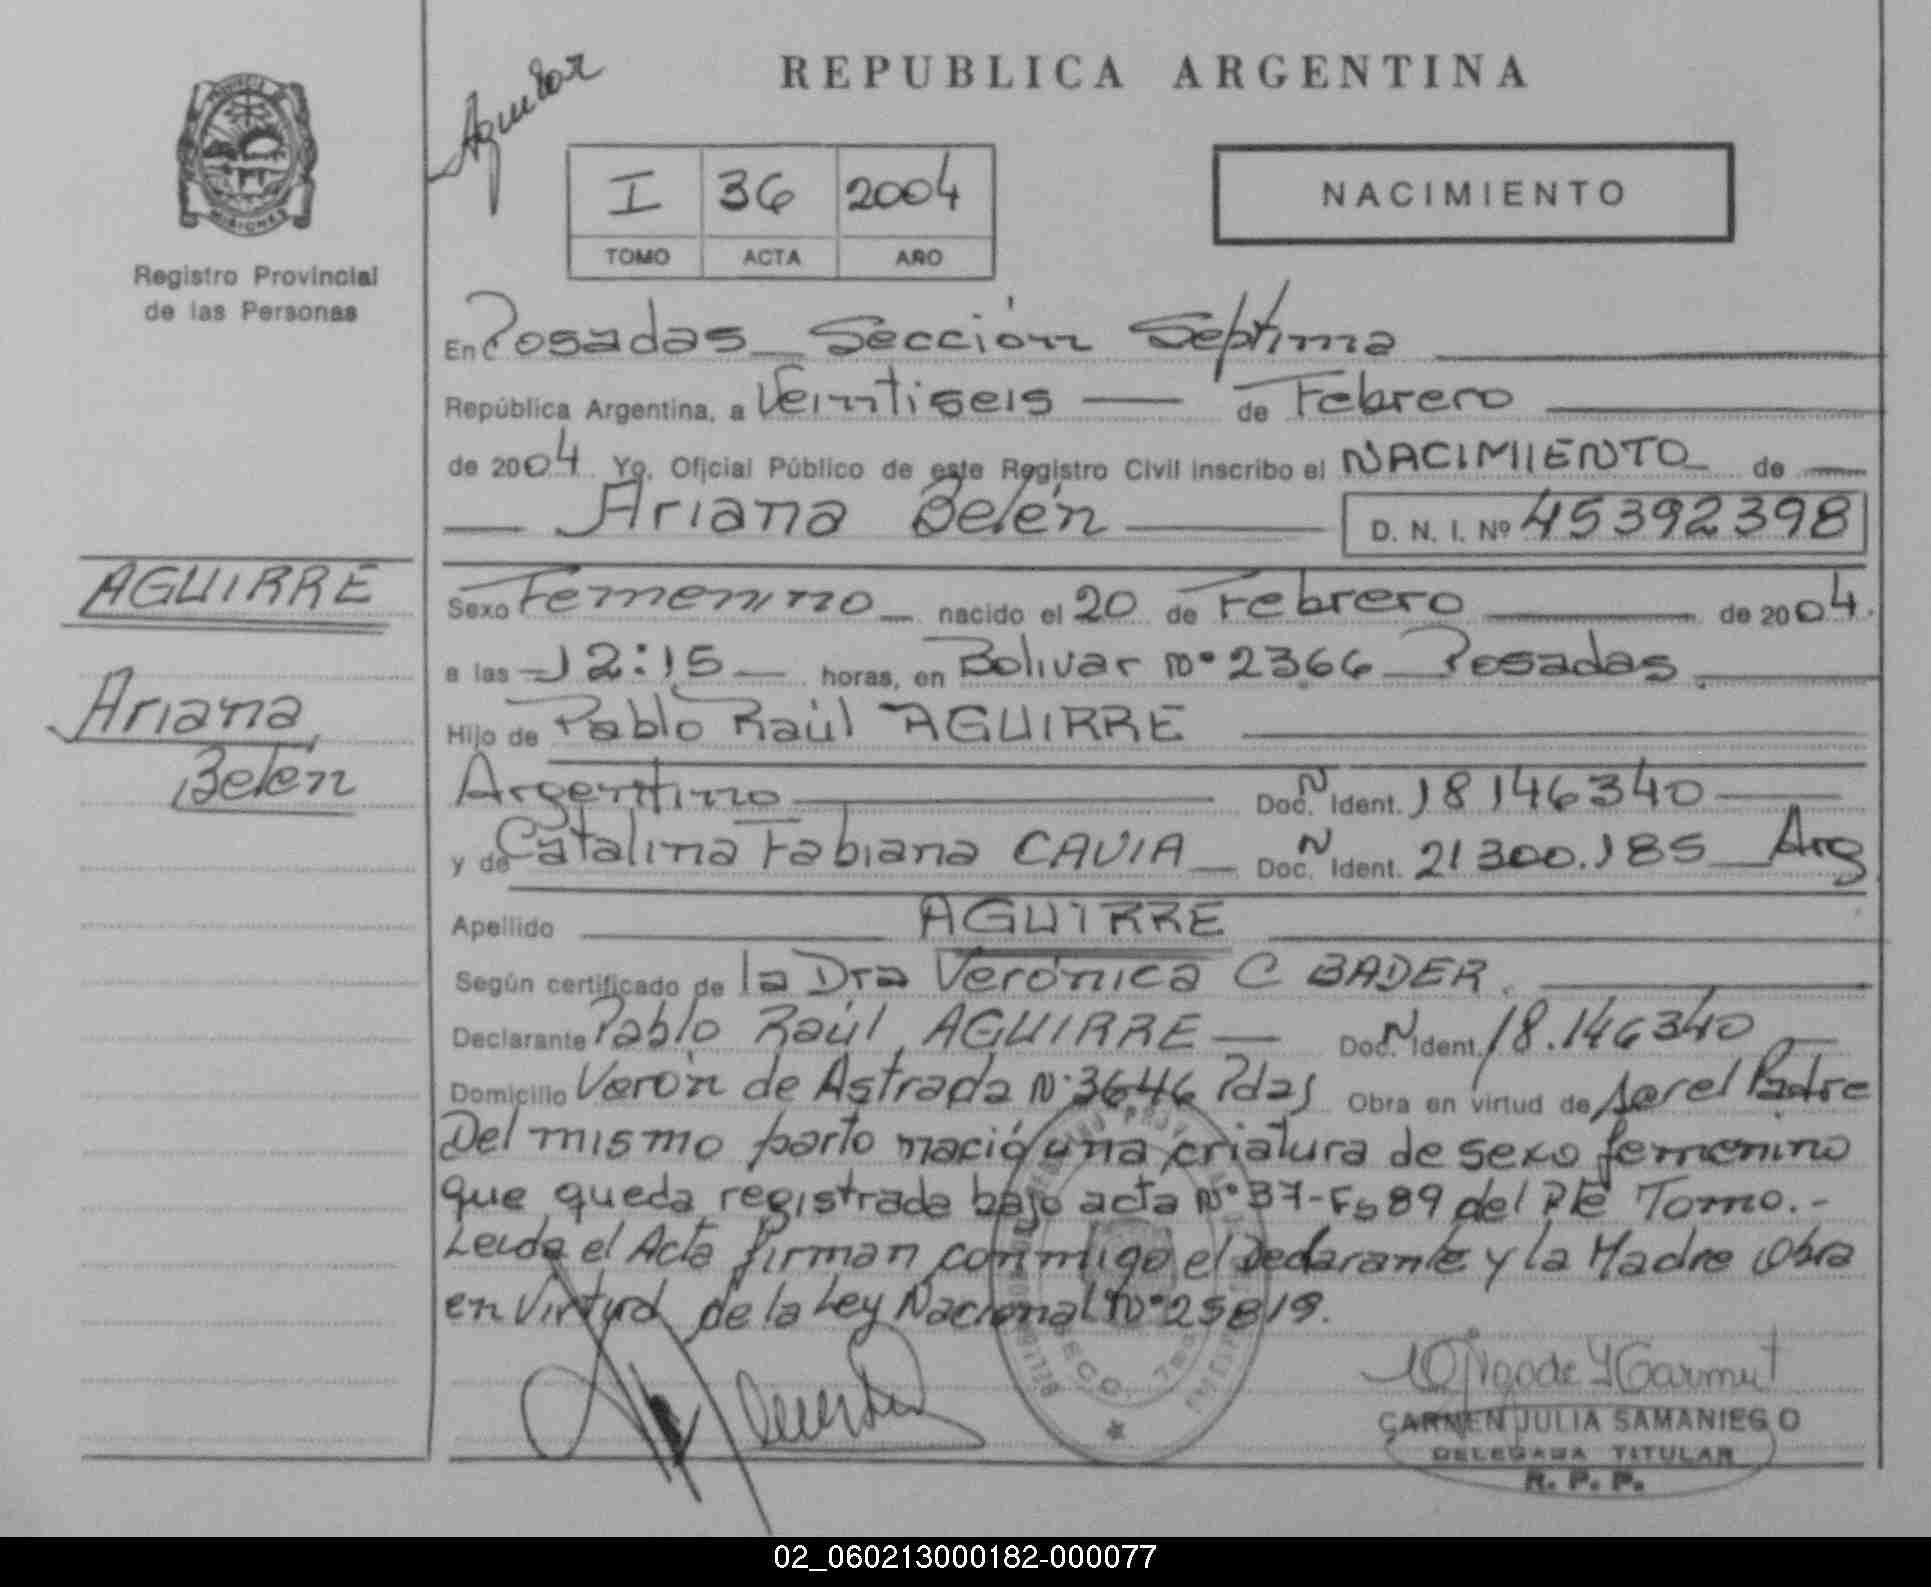 REPUBLICA ARGENTINA
I 36 2004
TOMO ACTA AÑO
NACIMIENTO
PROVINCIA DE
MISIONES
Registro Provincial
de las Personas
En Posadas Sección Septima
República Argentina, a Veintiseis de Febrero
de 2004 Yo, Oficial Público de este Registro Civil inscribo el NACIMIENTO de
Ariana Belén D. N. I. Nº 45392398
AGUIRRE
Ariana
Belén
Sexo Femenino nacido el 20 de Febrero de 2004.
a las 12:15 horas, en Bolivar Nº 2366 Posadas
Hijo de Pablo Raúl AGUIRRE
Argentino Doc. N Ident. 18146340
y de Catalina Fabiana CAVIA Doc. N Ident. 21300.185 Arg
Apellido AGUIRRE
Según certificado de la Dra Verónica C BADER.
Declarante Pablo Raúl AGUIRRE Doc. N Ident. 18.146340
Domicilio Verón de Astrada Nº 3646 Pdas Obra en virtud de ser el Padre
Del mismo parto nació una criatura de sexo femenino
que queda registrada bajo acta Nº 37-Fs 89 del Pte Tomo.-
Leida el Acta firman conmigo el Declarante y la Madre Obra
en Virtud de la Ley Nacional Nº 25819.
CARMEN JULIA SAMANIEGO
DELEGADA TITULAR
R. P. P.
02_060213000182-000077